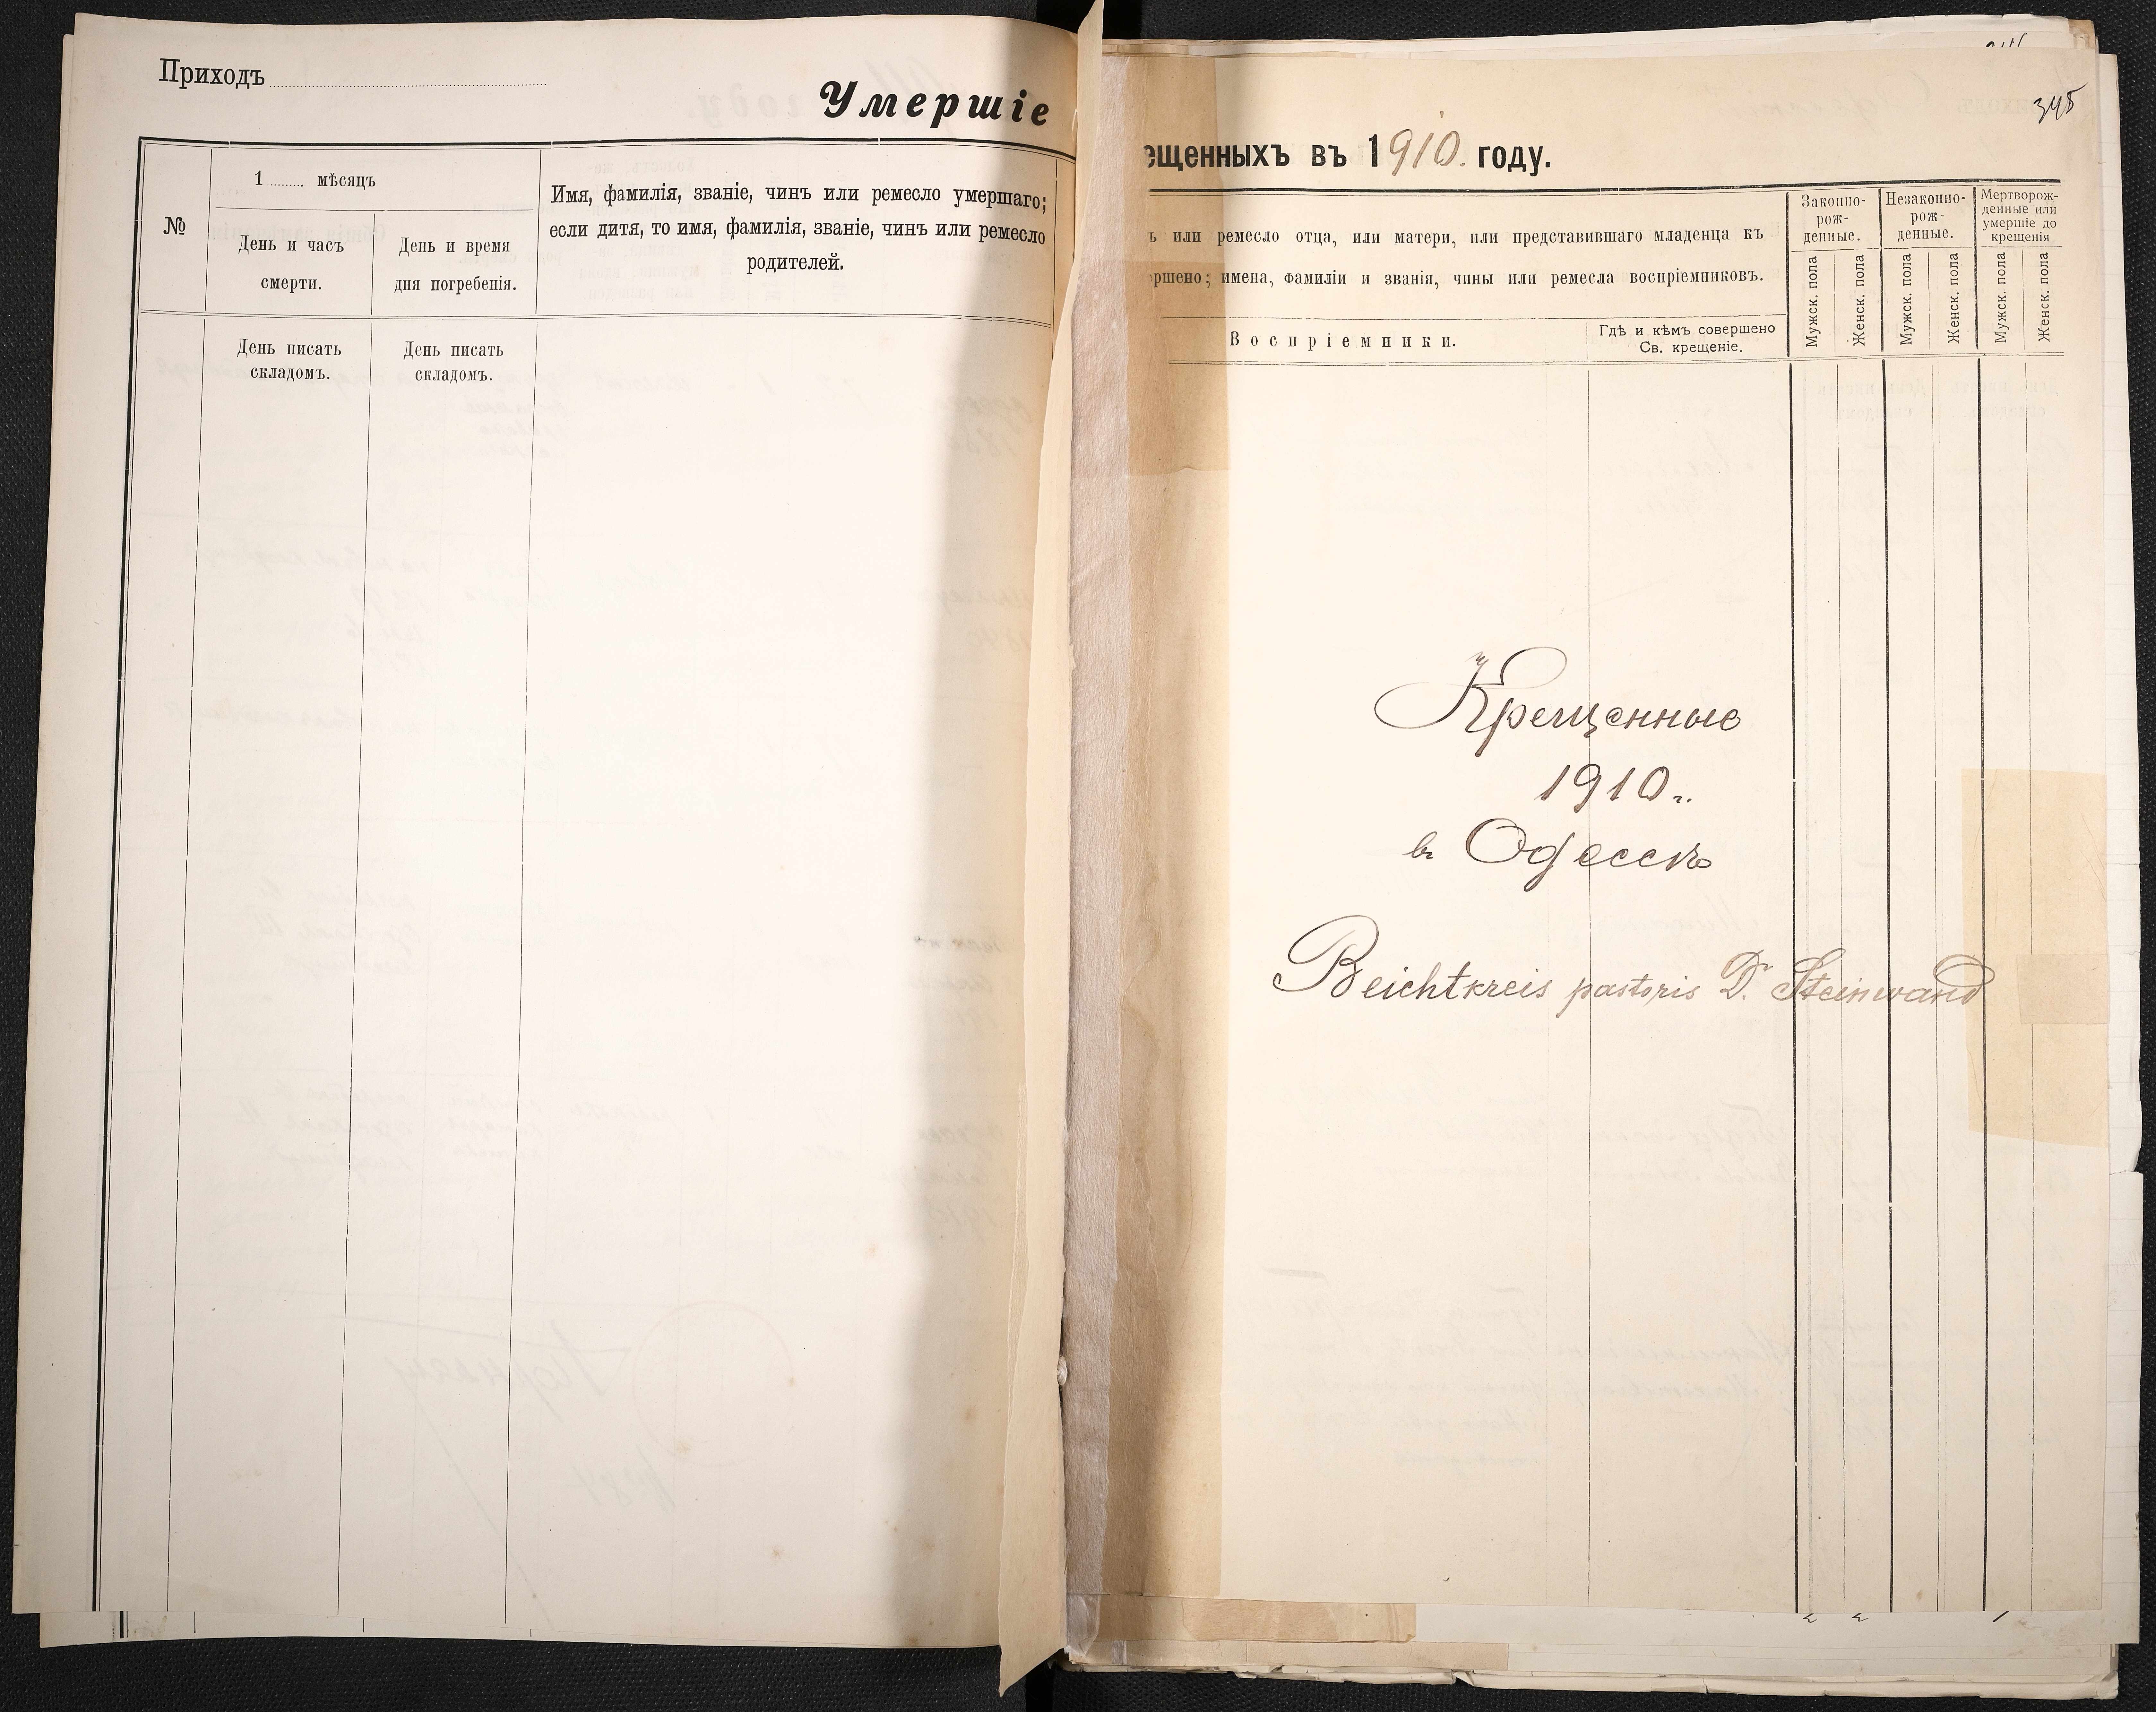 Приходъ
Умершіе
№
1 мѣсяцъ
День и часъ
смерти.
День и время
дня погребенія.
Имя, фамилія, званіе, чинъ или ремесло умершаго;
если дитя, то имя, фамилія, званіе, чинъ или ремесло
родителей.
День писать
складомъ.
День писать
складомъ.
345
ещенныхъ въ 1910. году.
ъ или ремесло отца, или матери, или представившаго младенца къ
ршено; имена, фамиліи и званія, чины или ремесла воспріемниковъ.
Воспріемники.
Гдѣ и кѣмъ совершено
Св. крещеніе.
Законно-
рож-
денные.
Незаконно-
рож-
денные.
Мертворож-
денные или
умершіе до
крещенія
Мужск. пола
Женск. пола
Мужск. пола
Женск. пола
Мужск. пола
Женск. пола
Крещенные
1910 г.
въ Одессѣ
Beichtkreis pastoris D. Steinwand